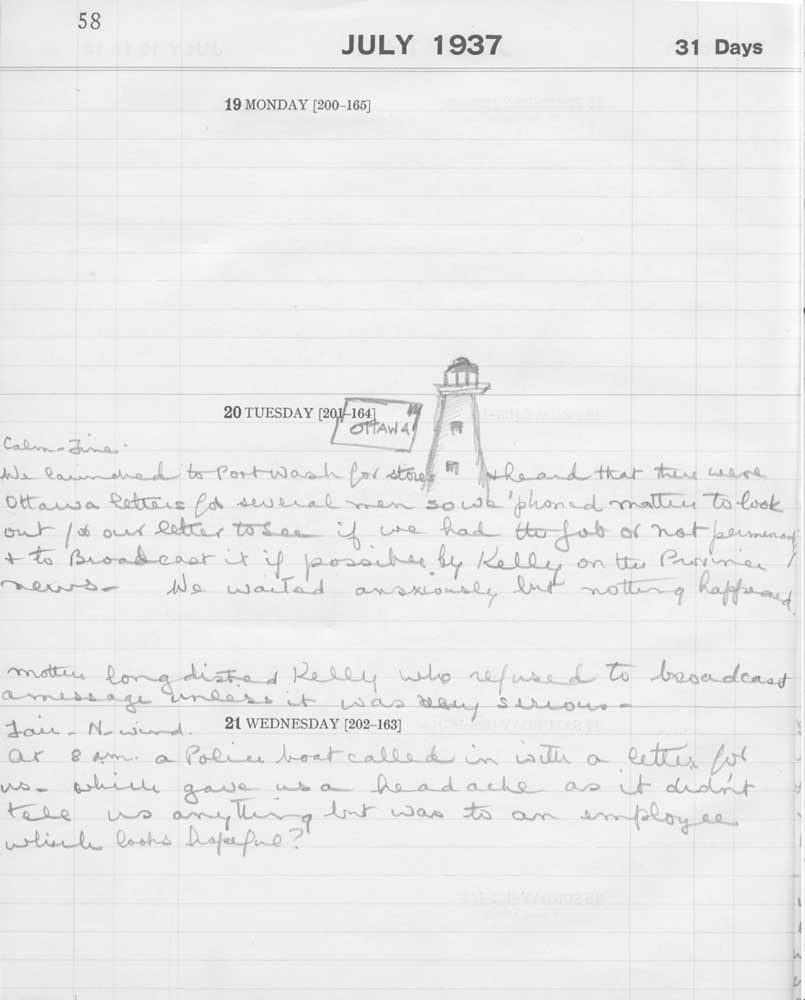 58
JULY 1937
31 Days
19 MONDAY [200-165]
20 TUESDAY [201-164]
OTTAWA
Calm - Fine.
We launched to Port Wash for stores & heard that there were
Ottawa letters for several men so we 'phoned mother to look
out for our letter to see if we had the job or not permenant
+ to Broadcast it if possible by Kelly on the Province
news - We waited anxiously but nothing happened.
mother long disted Kelly who refused to broadcast
a message unless it was very serious -
Fair - N - wind.
21 WEDNESDAY [202-163]
At 8 am. a Police boat called in with a letter for
us - which gave us a headache as it didn't
tell us anything but was to an employee
which looks hopeful?